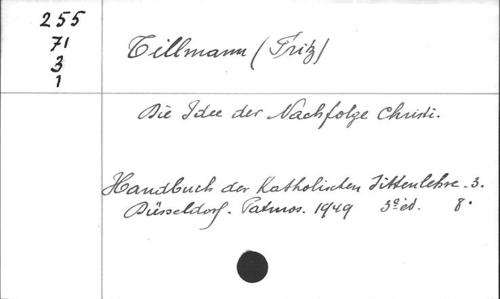 255
71
3
1
Tillmann (Fritz)
Die Idee der Nachfolge Christi.
Handbuch der Katholischen Sittenlehre - 3.
Düsseldorf. Patmos. 1949 3e éd. 8°.